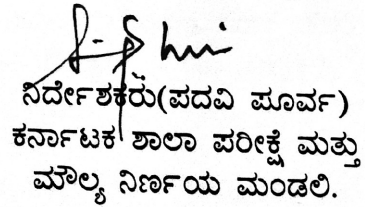 ನಿರ್ದೇಶಕರು(ಪದವಿ ಪೂರ್ವ)
ಕರ್ನಾಟಕ ಶಾಲಾ ಪರೀಕ್ಷೆ ಮತ್ತು
ಮೌಲ್ಯ ನಿರ್ಣಯ ಮಂಡಲಿ.